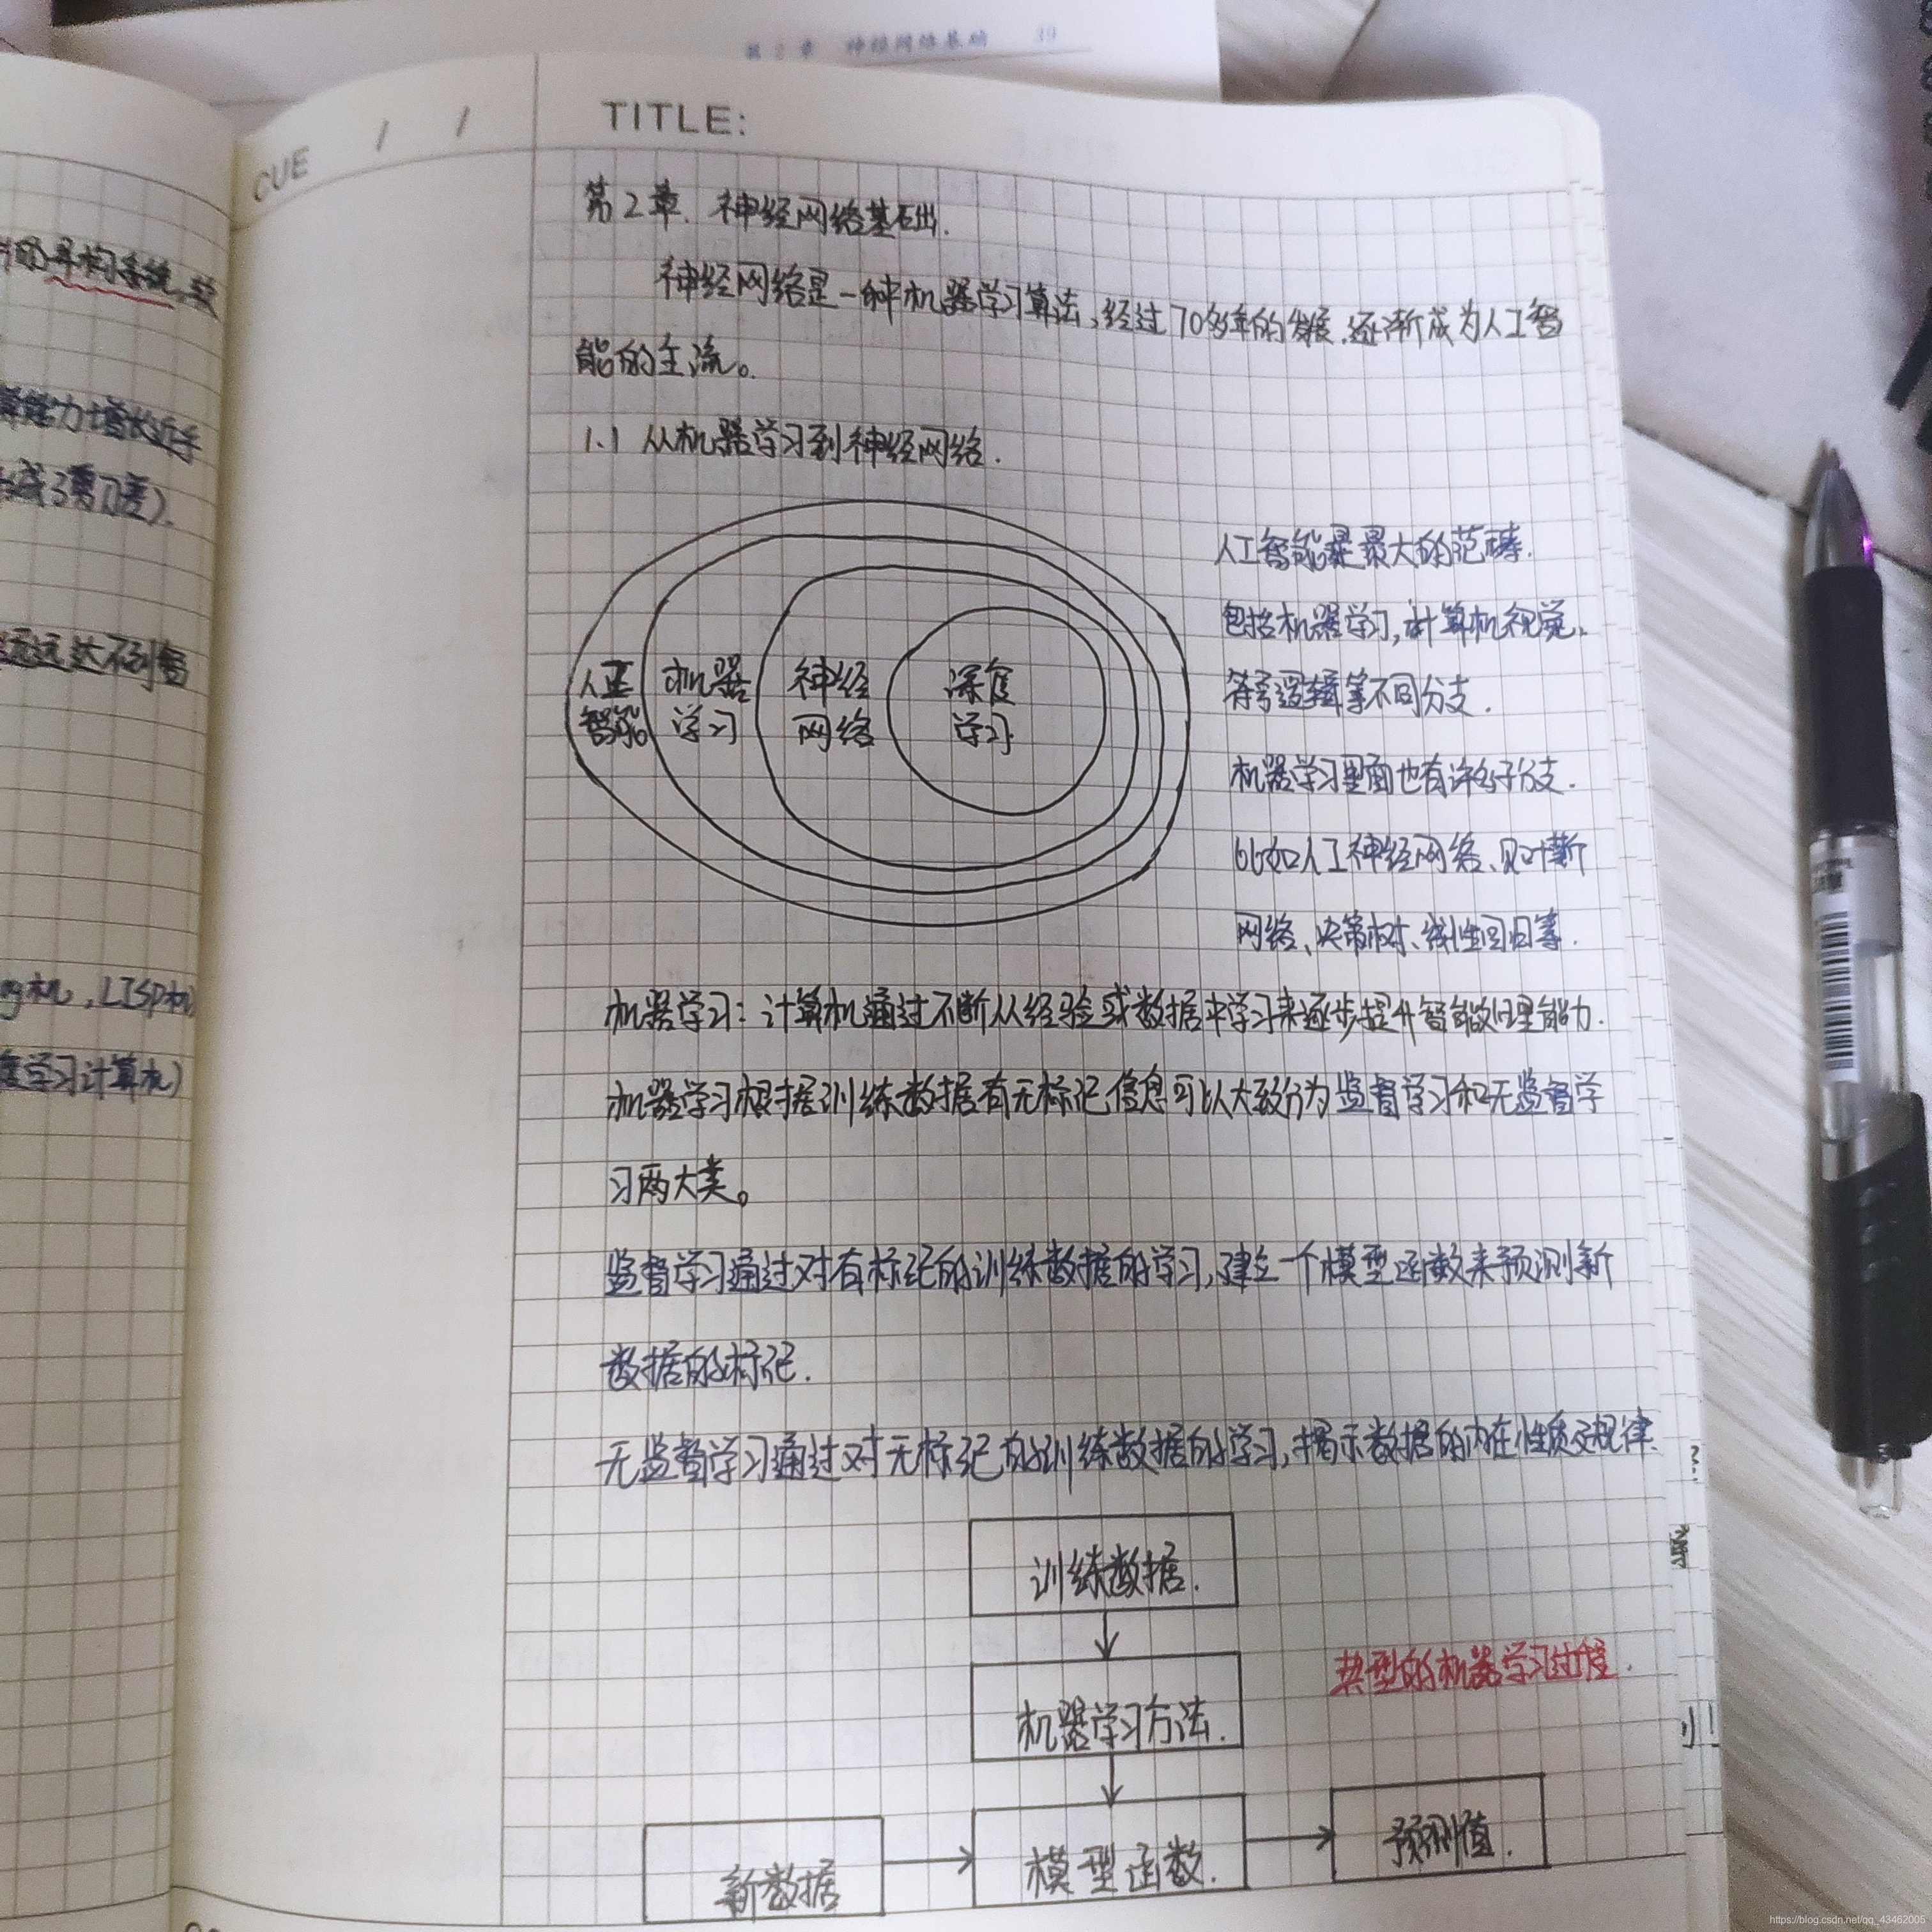 第2章 神经网络基础 39
CUE / /
TITLE:
第2章. 神经网络基础.
神经网络是一种机器学习算法,经过70多年的发展,逐渐成为人工智
能的主流。
1.1 从机器学习到神经网络.
人工
智能
机器
学习
神经
网络
深度
学习
人工智能是最大的范畴.
包括机器学习,计算机视觉,
符号逻辑等不同分支.
机器学习里面也有许多子分支.
比如人工神经网络、贝叶斯
网络、决策树、线性回归等.
机器学习:计算机通过不断从经验或数据中学习来逐步提升智能处理能力.
机器学习根据训练数据有无标记信息可以大致分为监督学习和无监督学
习两大类。
监督学习通过对有标记的训练数据的学习,建立一个模型函数来预测新
数据的标记.
无监督学习通过对无标记的训练数据的学习,揭示数据的内在性质及规律.
训练数据.
机器学习方法.
典型的机器学习过程.
新数据
模型函数.
预测值.
的异构系统
能力增长近乎
成了剪刀差).
远远达不到智
机,LISP机
学习计算机)
https://blog.csdn.net/qq_43462005